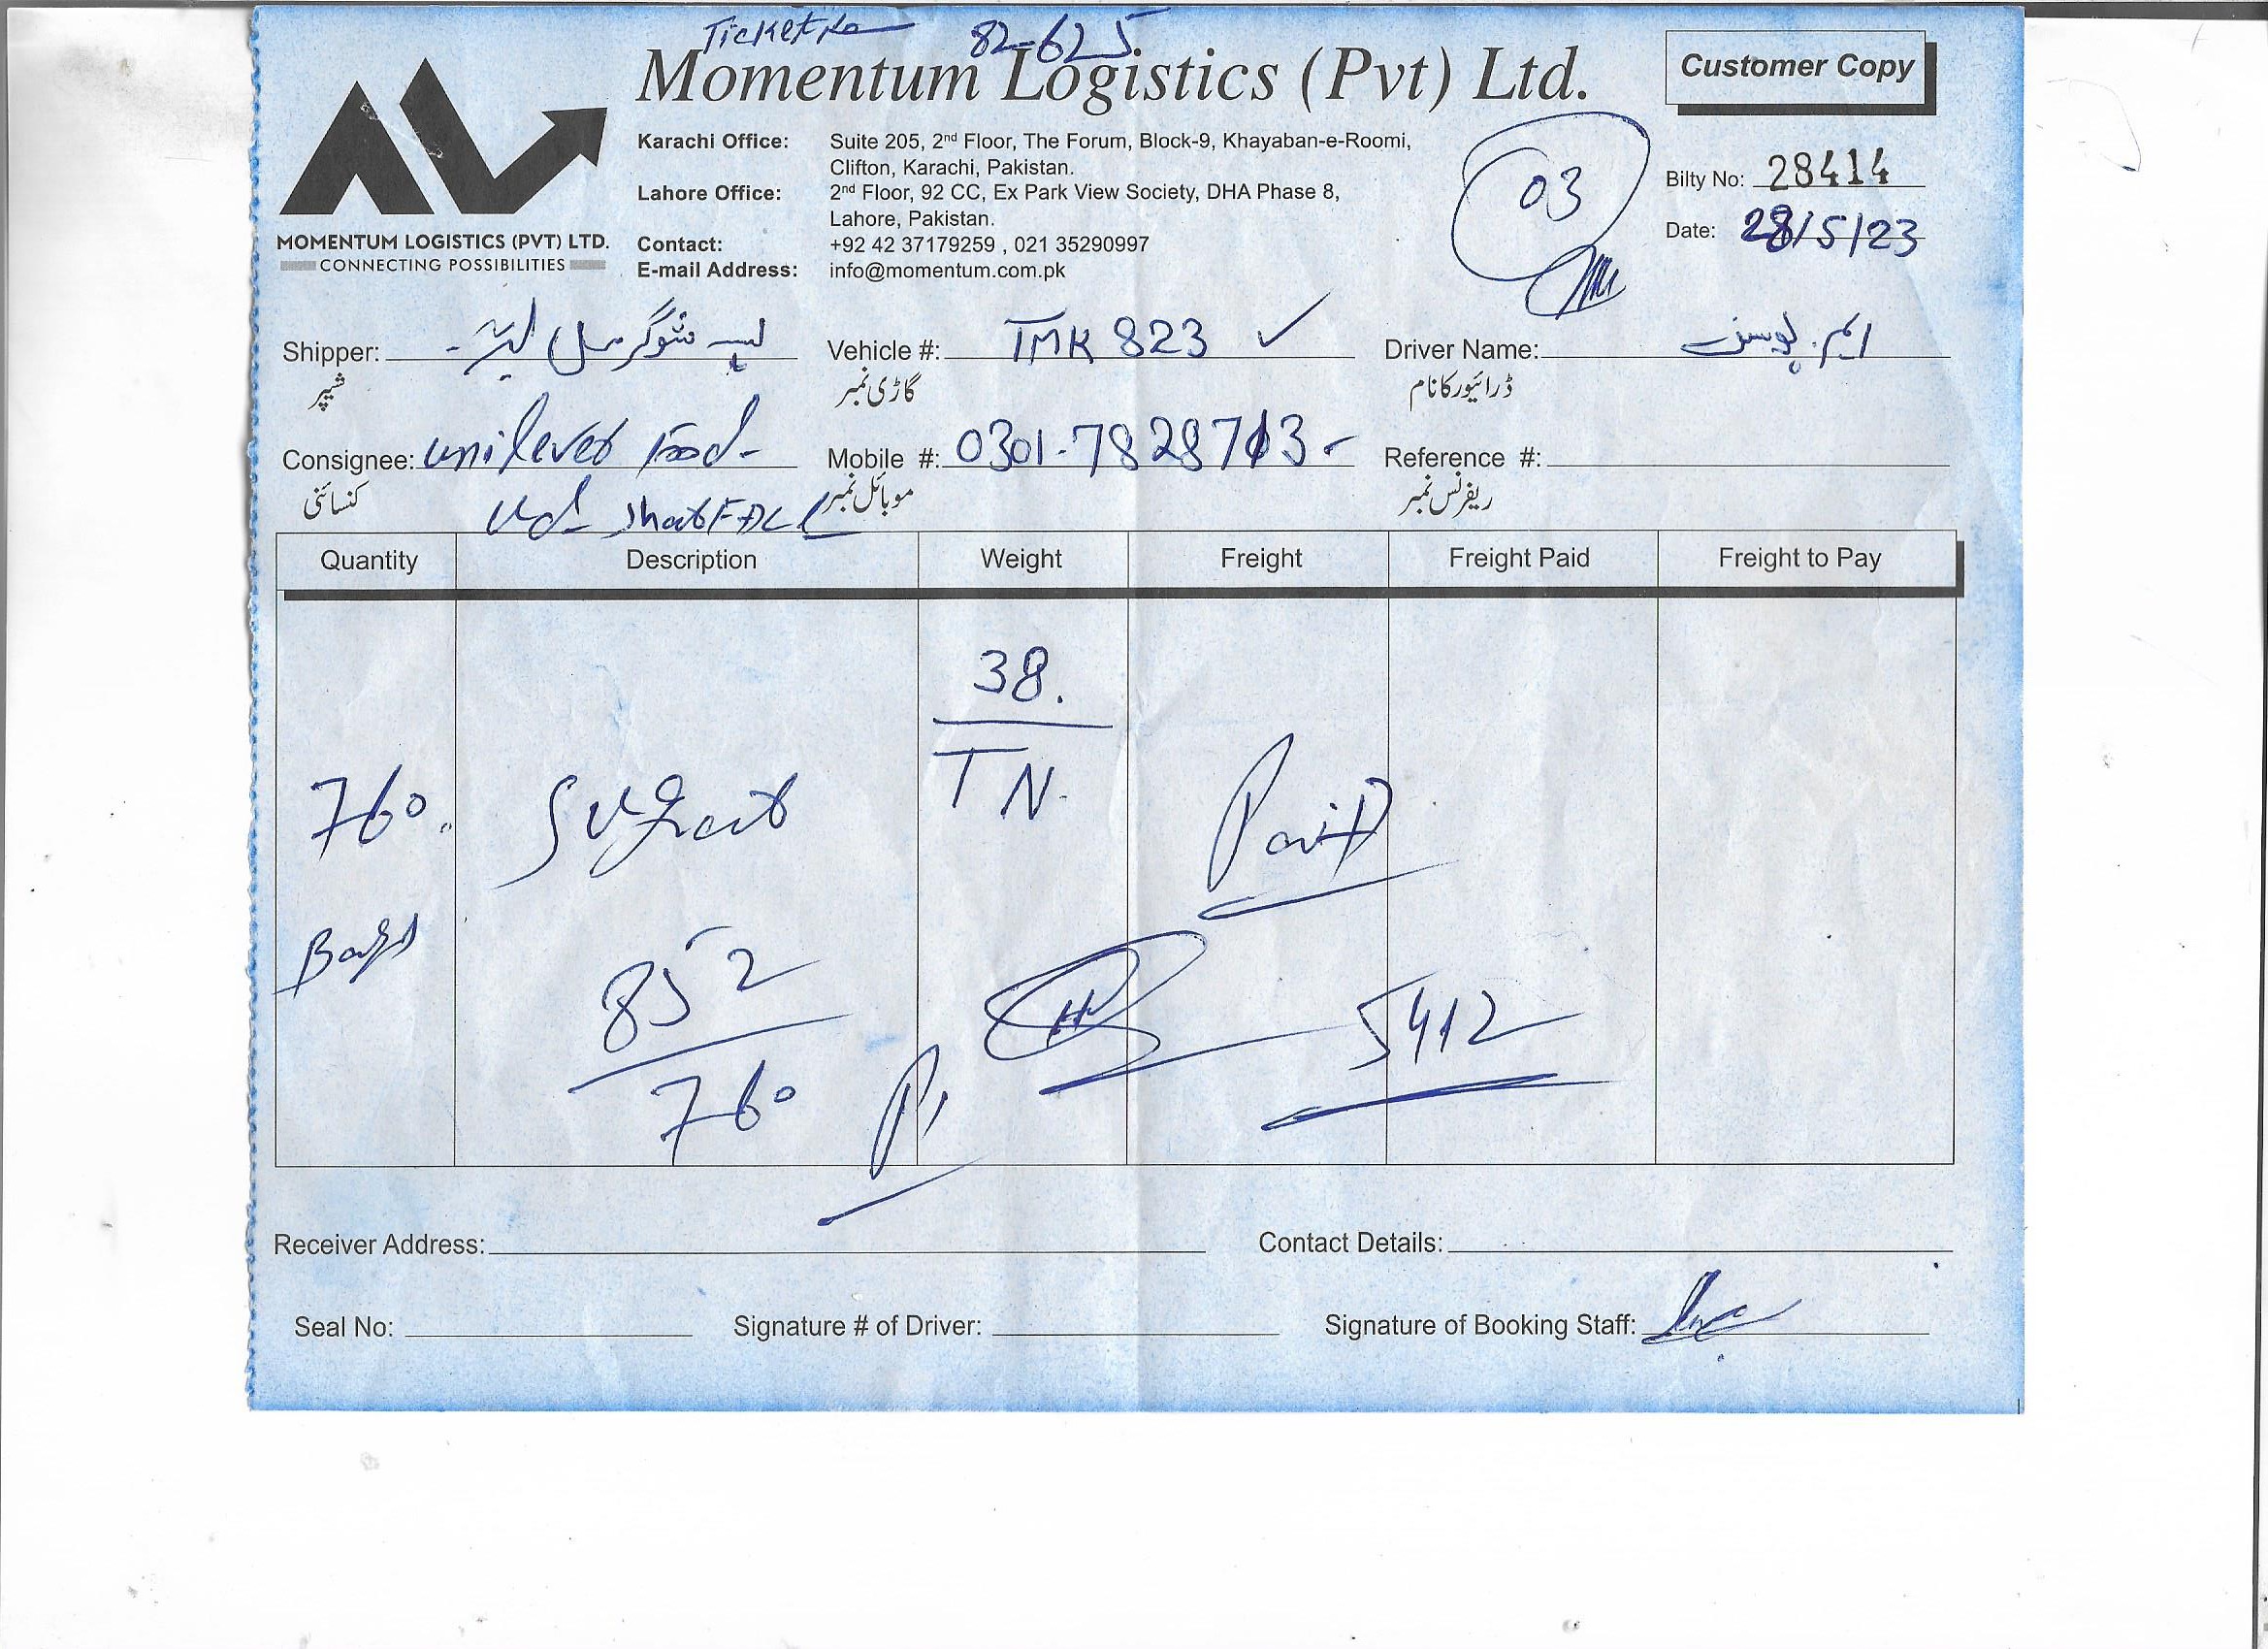 Ticket No 82-625
Momentum Logistics (Pvt) Ltd.
Customer Copy
MOMENTUM LOGISTICS (PVT) LTD.
CONNECTING POSSIBILITIES
Karachi Office: Suite 205, 2nd Floor, The Forum, Block-9, Khayaban-e-Roomi,
Clifton, Karachi, Pakistan.
Lahore Office: 2nd Floor, 92 CC, Ex Park View Society, DHA Phase 8,
Lahore, Pakistan.
Contact: +92 42 37179259 , 021 35290997
E-mail Address: info@momentum.com.pk
03
Bilty No: 28414
Date: 28/5/23
Shipper: لیہ شوگر مل لیہ Vehicle #: TMK 823 Driver Name: ایم یوسف
شپر گاڑی نمبر ڈرائیور کا نام
Consignee: unilever Food Mobile #: 0301-7828713 Reference #:
کنسائنی موبائل نمبر ریفرنس نمبر
Quantity Description Weight Freight Freight Paid Freight to Pay
38.
TN.
760 Sugar Paid
Bags
852 5412
760
Receiver Address: Contact Details:
Seal No: Signature # of Driver: Signature of Booking Staff: